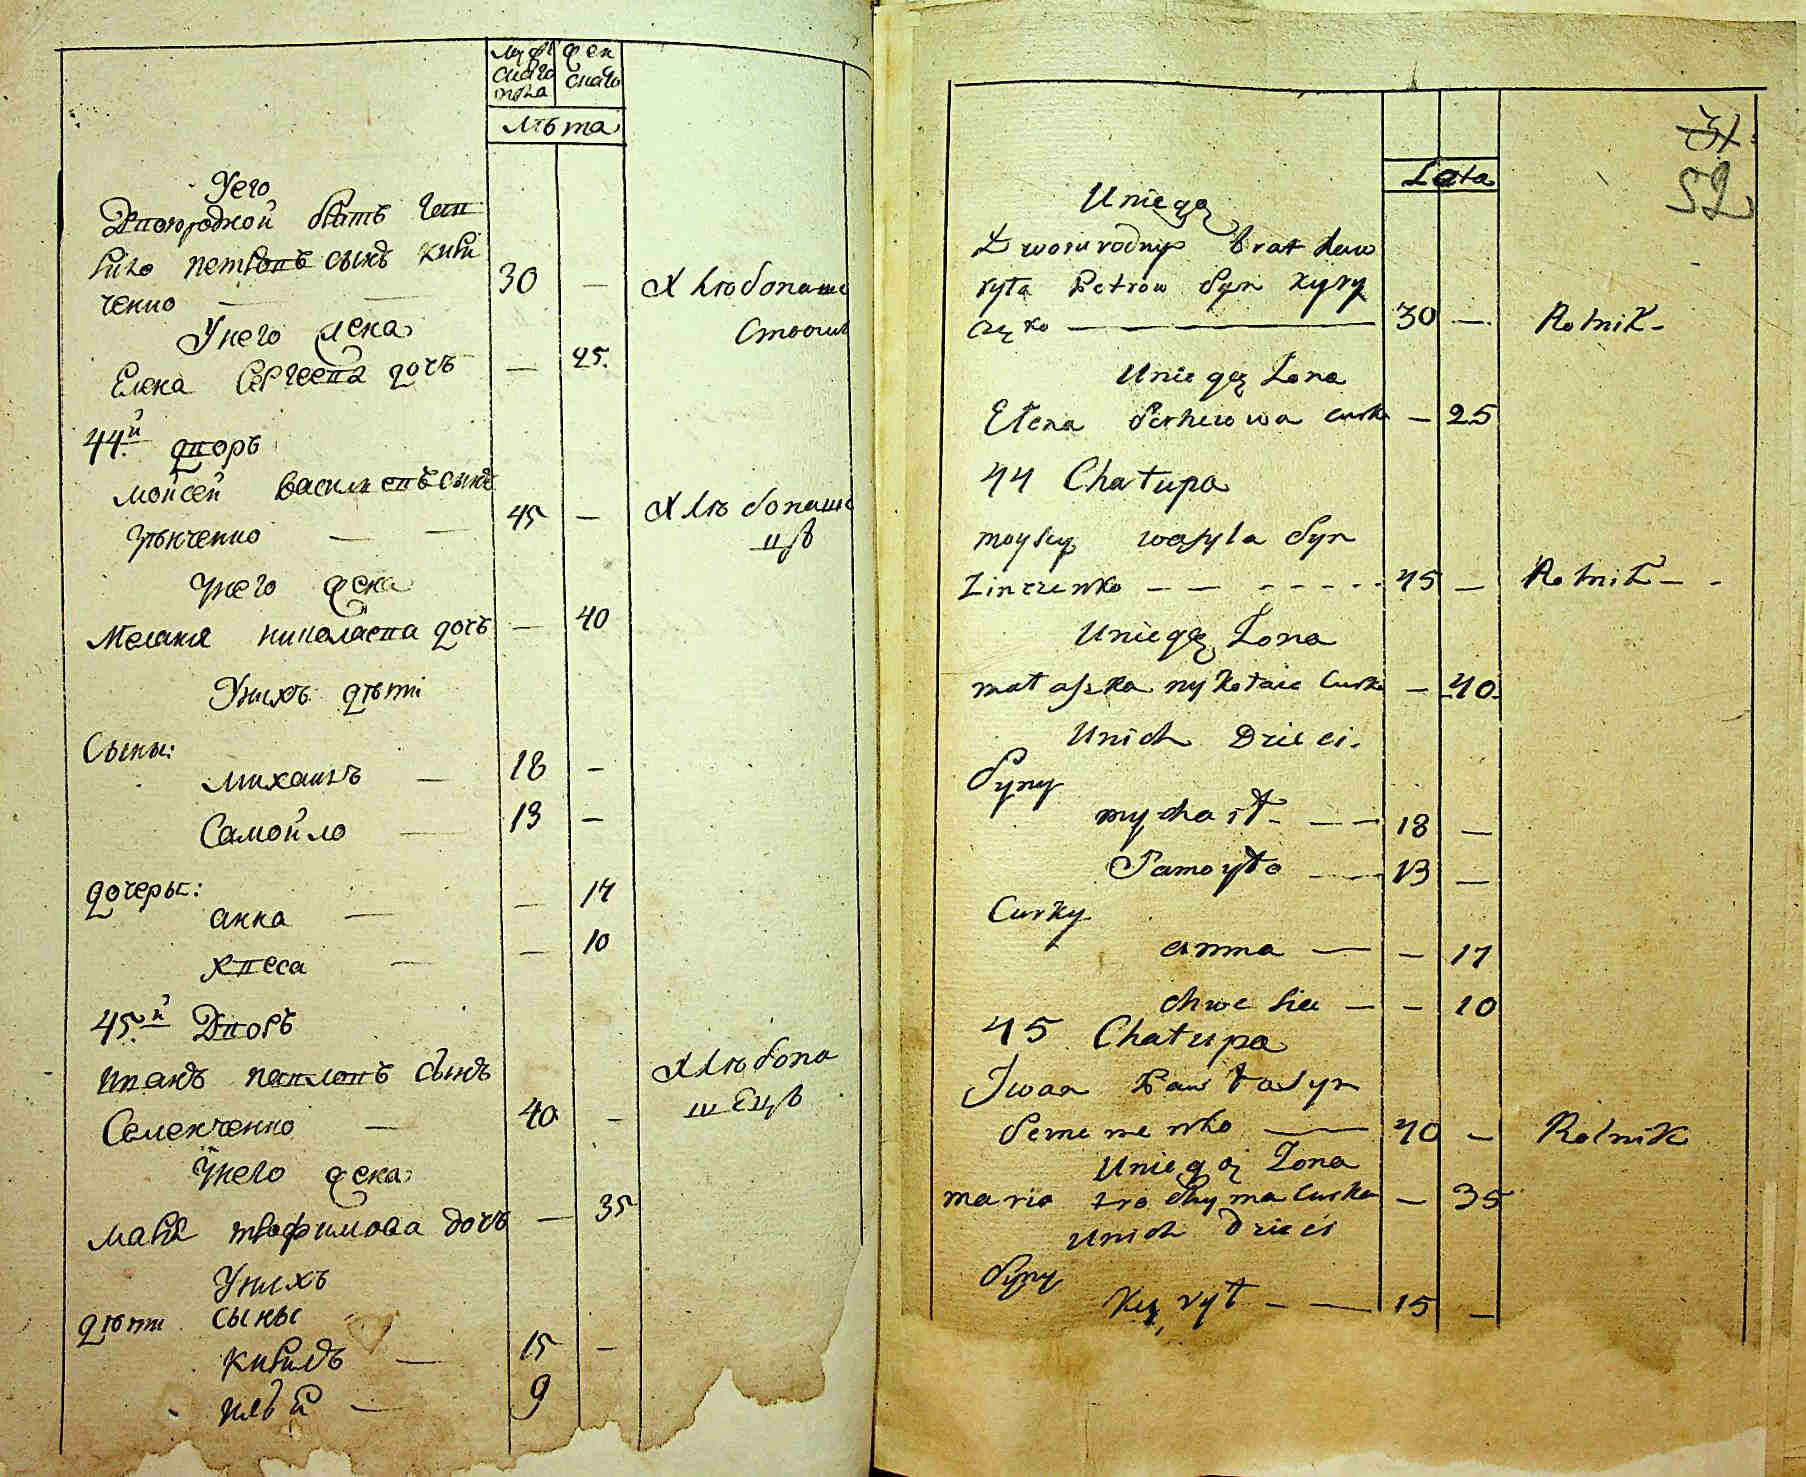 мужескаго пола
женскаго
лѣта
У его
Двоюродной братъ Гав
рило петровъ сынъ Кири
ченко — — 30 — Хлѣбопаше
ствомъ
У него жена
Елена Сергеева дочь — 25.
44.й дворъ
мойсей василіевъ сынъ
Зѣнченко — — 45 — Хлѣбопаше
цъ
У него жена
Меланя николаева дочъ — 40
У нихъ дѣти
Сыны:
михаилъ — 18 —
Самойло — 13 —
дочеры:
анна — — 17
хвеса — — 10
45.й Дворъ
иванъ павловъ сынъ
Семенченко — 40 — Хлѣбопа
шецъ
У него жена
маря трофимова дочъ — 35
У нихъ
дѣти сыны
кирилъ — 15 —
илья — 9
31.
52
Lata
Uniego
Dworurodny brat haw
ryła Petrow Syn Kyry
częko — 30 — Rolnik
Uniego Zona
Ełena Serheiowa curka — 25
44 Chałupa
moysey wasyla Syn
Zinczenko — — 45 — Rolnik — -
Uniego Zona
małaszka nykołaia Curka — 40
Unich Dzieci.
Syny
mychaił — — 18 —
Samoyło — 13 —
Curky
anna — — 17
chwesia — — 10
45 Chałupa
Iwan Pawła Syn
Semenenko — 40 — Rolnik
Uniego Zona
maria trochyma Curka — 35
unich Dzieci
Syny
Kyrył — — 15 —